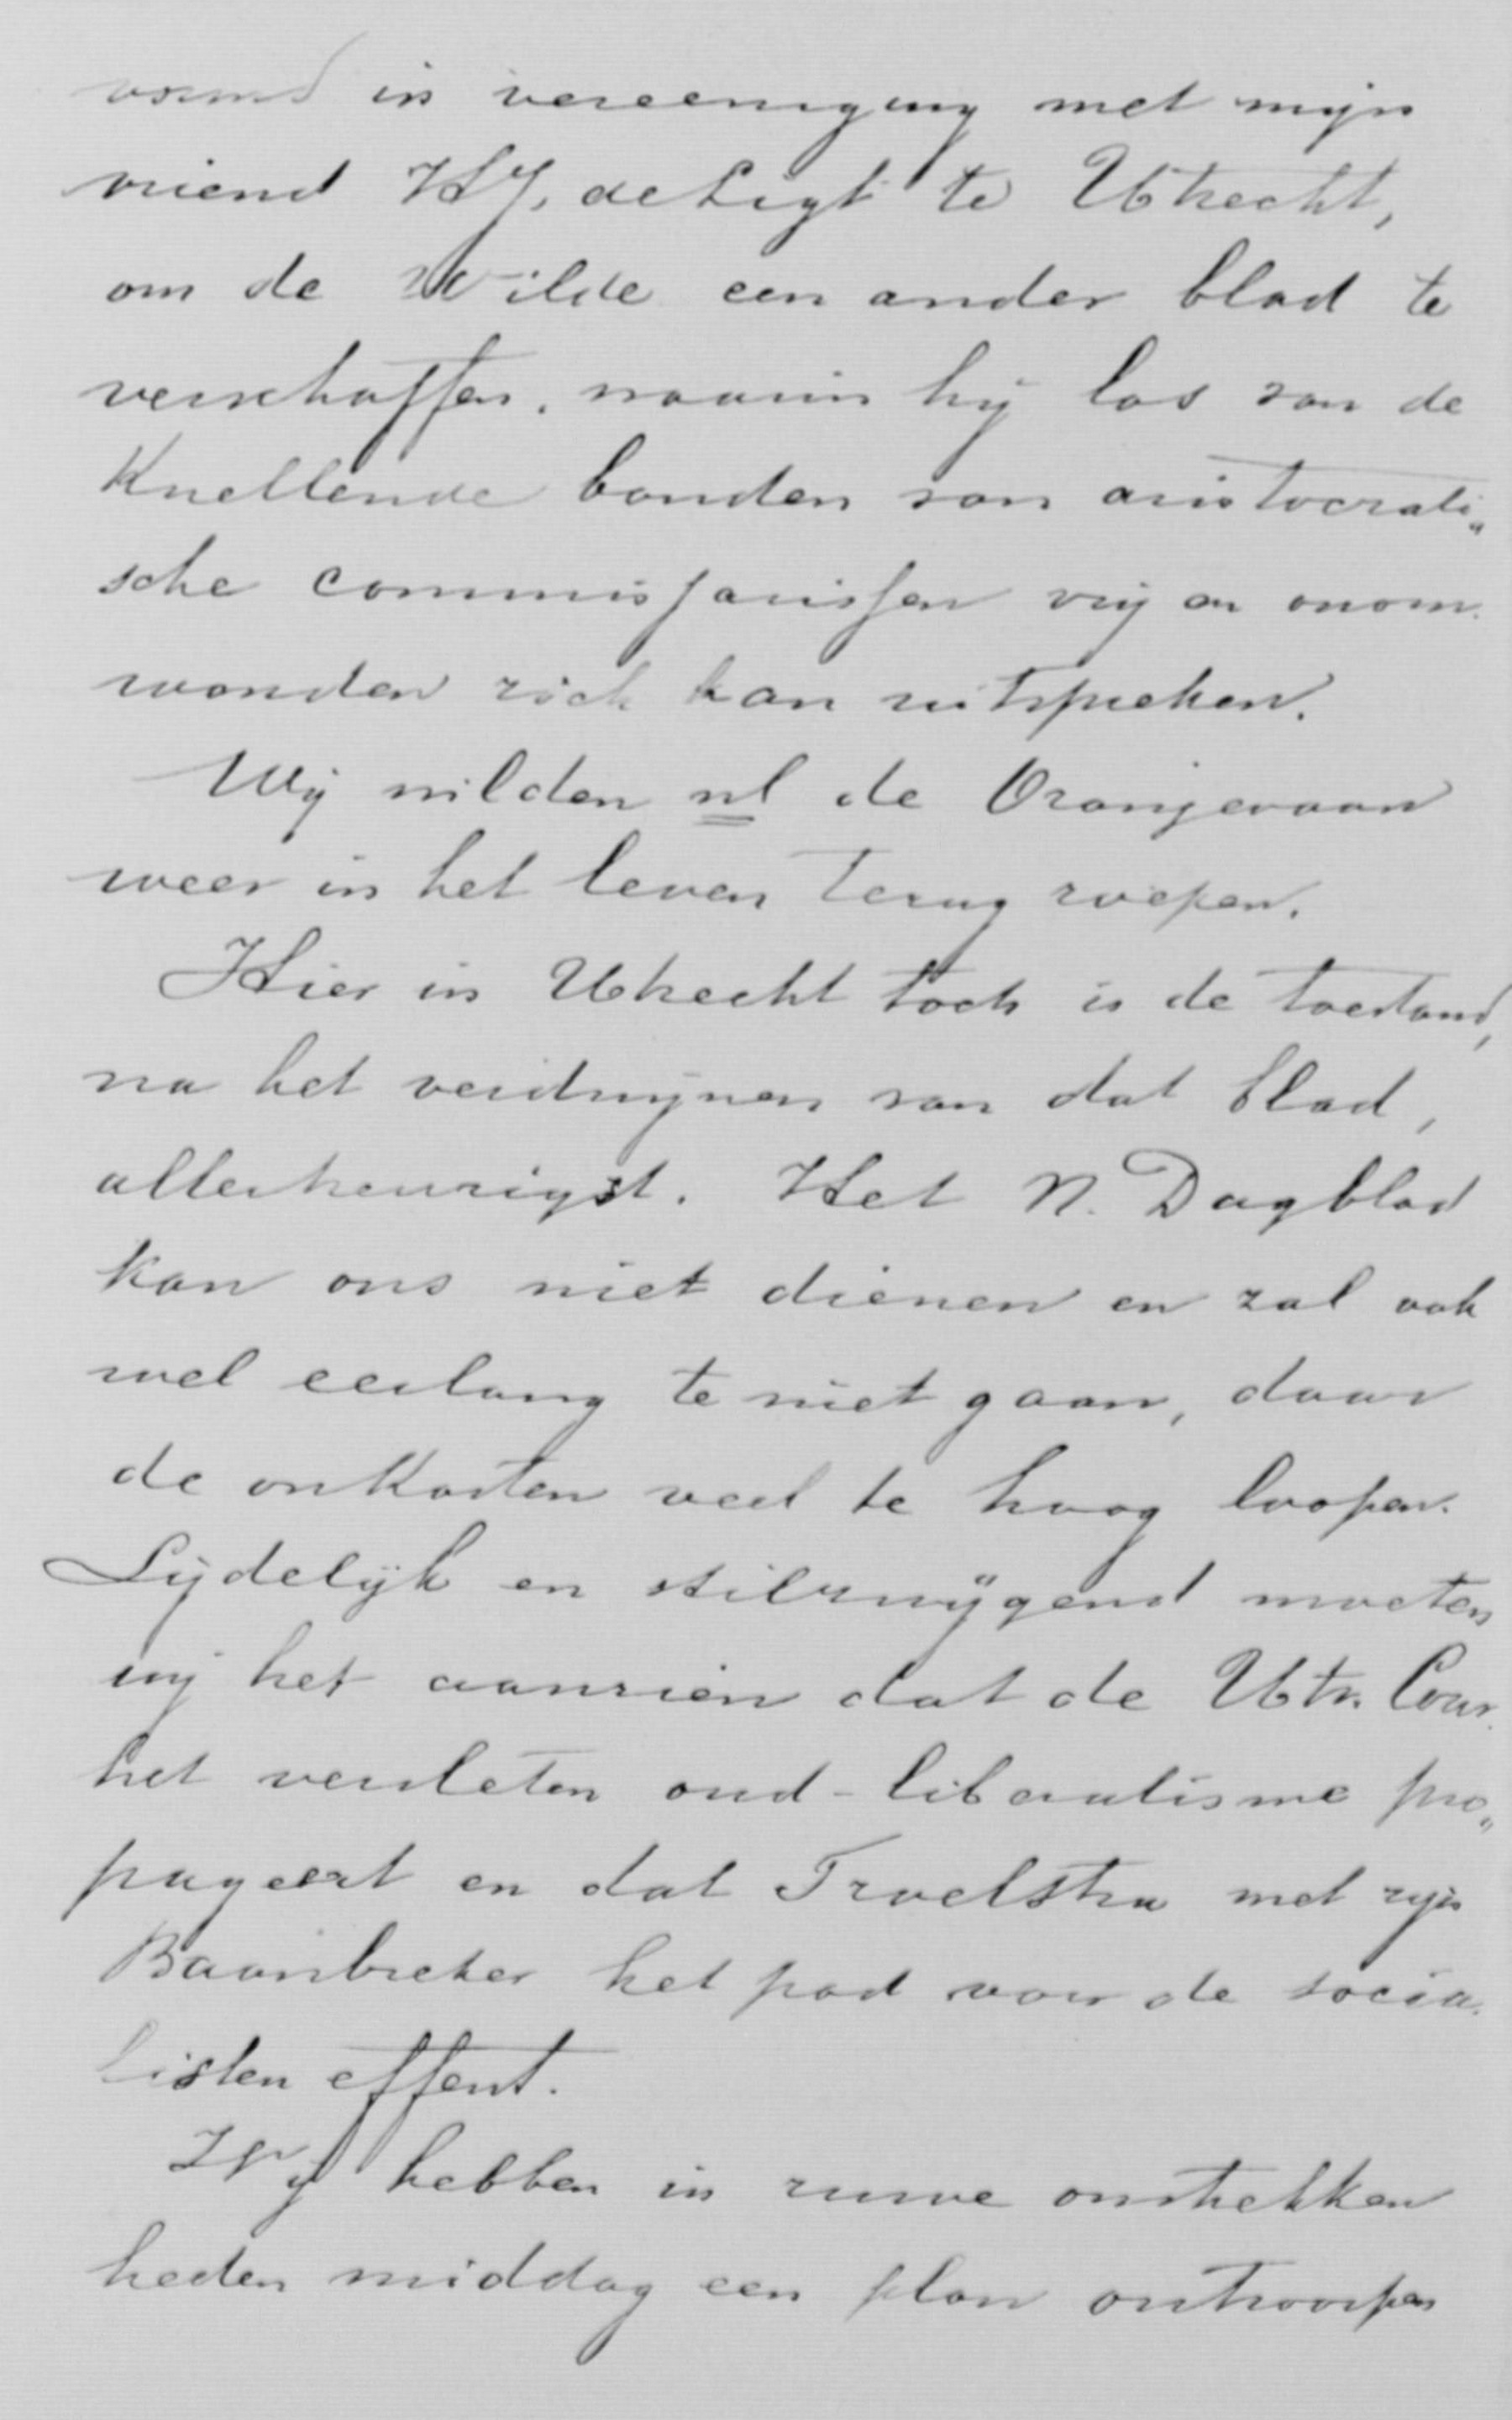 vormd in vereeniging met mijn
vriend H.J. de Ligt te Utrecht,
om de Wilde een ander blad te
verschaffen, waarin hij los van de
knellende banden van aristocrati„
sche commissarissen vrij en onom„
wonden zich kan uitspreken.
Wij wilden nl de Oranjevaan
weer in het leven terug roepen.
Hier in Utrecht toch is de toestand,
na het verdwijnen van dat blad,
allertreurigst. Het N. Dagblad
kan ons niet dienen en zal ook
wel eerlang te niet gaan, daar
de onkosten veel te hoog loopen.
Lijdelijk en stilzwijgend moeten
wij het aanzien dat de Utr. Cour.
het versleten oud-liberalisme pro„
pageert en dat Troelstra met zijn
Baanbreker het pad voor de socia„
listen effent.
Wij hebben in ruwe omtrekken
heden middag een plan ontworpen